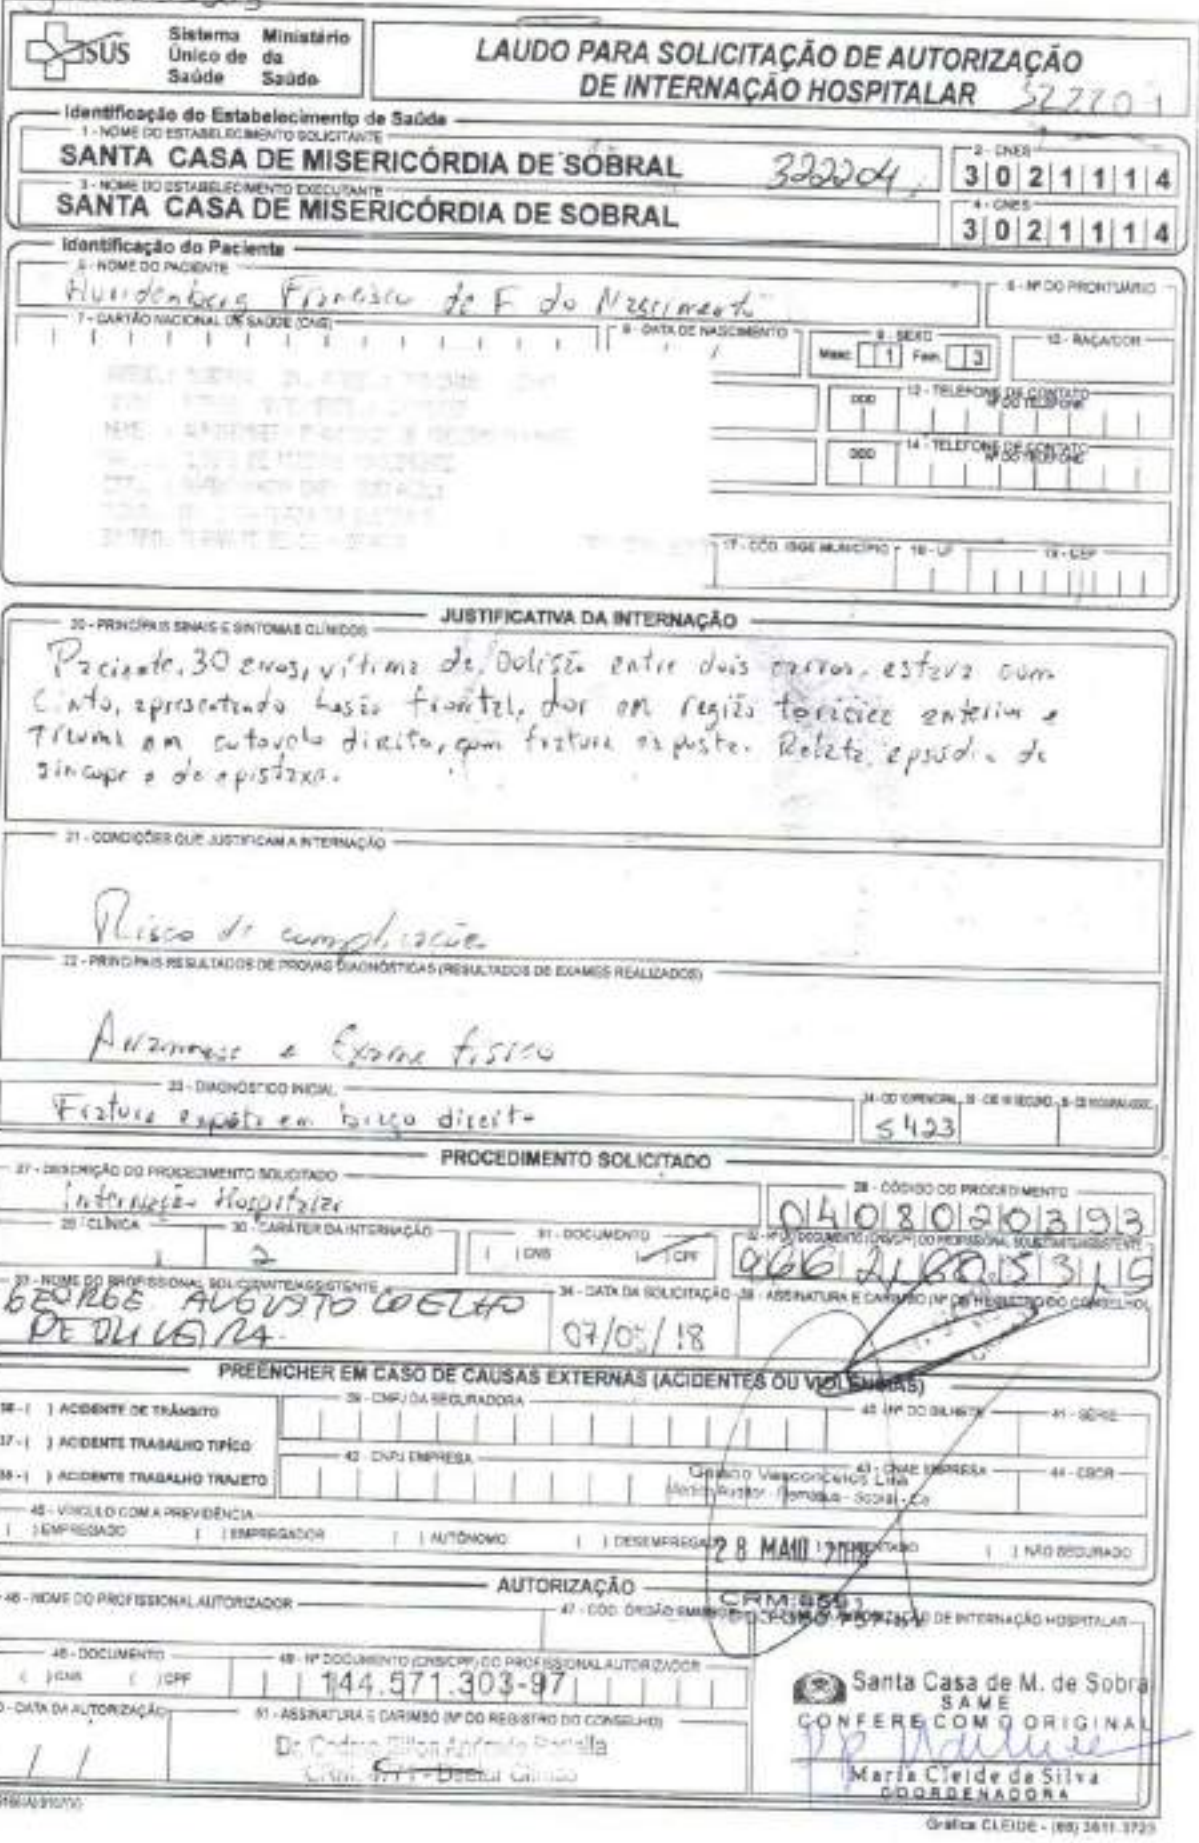 SUS
Sistema Único de Saúde
Ministério da Saúde
LAUDO PARA SOLICITAÇÃO DE AUTORIZAÇÃO
DE INTERNAÇÃO HOSPITALAR
Identificação do Estabelecimento de Saúde
1 - NOME DO ESTABELECIMENTO SOLICITANTE
SANTA CASA DE MISERICÓRDIA DE SOBRAL
322204
2 - CNES
3021114
3 - NOME DO ESTABELECIMENTO EXECUTANTE
SANTA CASA DE MISERICÓRDIA DE SOBRAL
4 - CNES
3021114
Identificação do Paciente
5 - NOME DO PACIENTE
6 - Nº DO PRONTUÁRIO
Francisco de F do Nascimento
7 - CARTÃO NACIONAL DE SAÚDE (CNS)
8 - DATA DE NASCIMENTO
9 - SEXO
Masc. 1 Fem. 3
10 - RAÇA/COR
DDD
12 - TELEFONE DE CONTATO
Nº DO TELEFONE
DDD
14 - TELEFONE DE CONTATO
Nº DO TELEFONE
17 - CÓD. IBGE MUNICÍPIO
18 - UF
19 - CEP
JUSTIFICATIVA DA INTERNAÇÃO
20 - PRINCIPAIS SINAIS E SINTOMAS CLÍNICOS
Paciente, 30 anos, vítima de colisão entre dois carros, estava com
cinto, apresentando lesão frontal, dor em região torácica anterior e
trauma em cotovelo direito, com fratura exposta. Relata episódio de
síncope e de epistaxe.
21 - CONDIÇÕES QUE JUSTIFICAM A INTERNAÇÃO
Risco de complicações
22 - PRINCIPAIS RESULTADOS DE PROVAS DIAGNÓSTICAS (RESULTADOS DE EXAMES REALIZADOS)
Anamnese e Exame físico
23 - DIAGNÓSTICO INICIAL
Fratura exposta em braço direito
24 - CID 10 PRINCIPAL
S423
PROCEDIMENTO SOLICITADO
27 - DESCRIÇÃO DO PROCEDIMENTO SOLICITADO
Internação Hospitalar
28 - CÓDIGO DO PROCEDIMENTO
0408020393
29 - CLÍNICA
1
30 - CARÁTER DA INTERNAÇÃO
2
31 - DOCUMENTO
( ) CNS ( ) CPF
32 - Nº DO DOCUMENTO (CNS/CPF) DO PROFISSIONAL SOLICITANTE/ASSISTENTE
33 - NOME DO PROFISSIONAL SOLICITANTE/ASSISTENTE
GEORGE AUGUSTO COELHO
DE OLIVEIRA
34 - DATA DA SOLICITAÇÃO
07/05/18
35 - ASSINATURA E CARIMBO (Nº DO REGISTRO DO CONSELHO)
PREENCHER EM CASO DE CAUSAS EXTERNAS (ACIDENTES OU VIOLÊNCIAS)
36 - ( ) ACIDENTE DE TRÂNSITO
39 - CNPJ DA SEGURADORA
40 - Nº DO BILHETE
41 - SÉRIE
37 - ( ) ACIDENTE TRABALHO TÍPICO
42 - CNPJ EMPRESA
43 - CNAE EMPRESA
44 - CBOR
38 - ( ) ACIDENTE TRABALHO TRAJETO
45 - VÍNCULO COM A PREVIDÊNCIA
( ) EMPREGADO ( ) EMPREGADOR ( ) AUTÔNOMO ( ) DESEMPREGADO ( ) APOSENTADO ( ) NÃO SEGURADO
28 MAIO 2018
AUTORIZAÇÃO
46 - NOME DO PROFISSIONAL AUTORIZADOR
48 - DOCUMENTO
( ) CNS ( ) CPF
49 - Nº DOCUMENTO (CNS/CPF) DO PROFISSIONAL AUTORIZADOR
144.571.303-97
50 - DATA DA AUTORIZAÇÃO
/ /
51 - ASSINATURA E CARIMBO (Nº DO REGISTRO DO CONSELHO)
Santa Casa de M. de Sobral
SAME
CONFERE COM O ORIGINAL
Maria Cleide da Silva
COORDENADORA
Gráfica CLEIDE - (88) 3611.3723